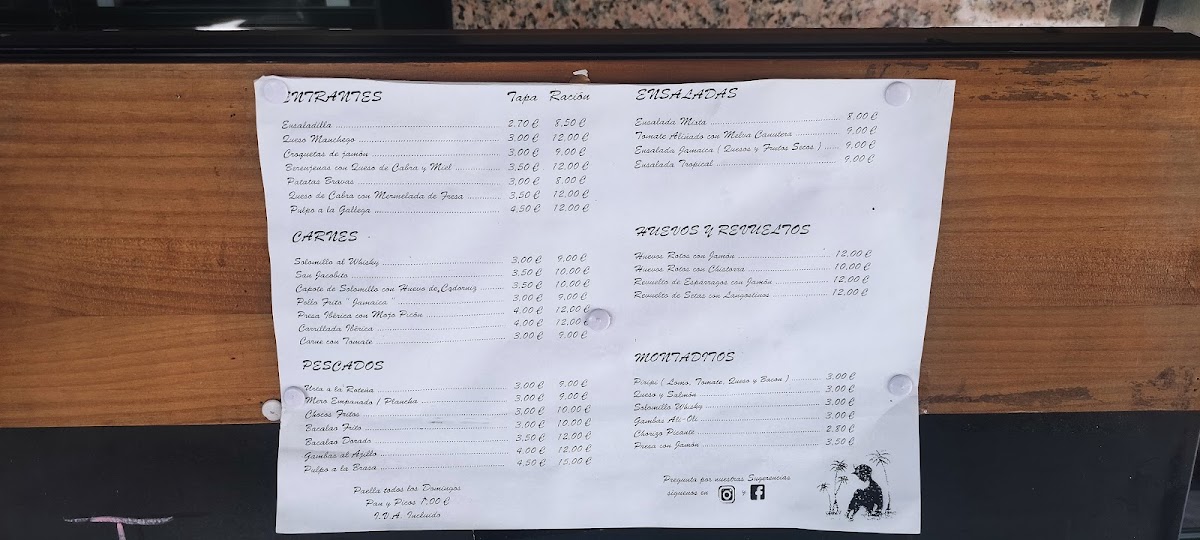 ENTRANTES Tapa Ración
Ensaladilla 2.70 € 8.50 €
Queso Manchego 3.00 € 12.00 €
Croquetas de jamón 3.00 € 9.00 €
Berenjenas con Queso de Cabra y Miel 3.50 € 12.00 €
Patatas Bravas 3.00 € 8.00 €
Queso de Cabra con Mermelada de Fresa 3.50 € 12.00 €
Pulpo a la Gallega 4.50 € 12.00 €
CARNES
Solomillo al Whisky 3.00 € 9.00 €
San Jacobito 3.50 € 10.00 €
Capote de Solomillo con Huevo de Codorniz 3.50 € 10.00 €
Pollo Frito " Jamaica " 3.00 € 9.00 €
Presa Ibérica con Mojo Picón 4.00 € 12.00 €
Carrillada Ibérica 4.00 € 12.00
Carne con Tomate 3.00 € 9.00 €
PESCADOS
Urta a la Roteña 3.00 € 9.00 €
Mero Empanado / Plancha 3.00 € 9.00 €
Chocos Fritos 3.00 € 10.00 €
Bacalao Frito 3.00 € 10.00 €
Bacalao Dorado 3.50 € 12.00 €
Gambas al Ajillo 4.00 € 12.00 €
Pulpo a la Brasa 4.50 € 15.00 €
Paella todos los Domingos
Pan y Picos 1,00 €
I.V.A. Incluido
ENSALADAS
Ensalada Mixta 8.00 €
Tomate Aliñado con Melva Canutera 9.00 €
Ensalada Jamaica ( Quesos y Frutos Secos ) 9.00 €
Ensalada Tropical 9.00 €
HUEVOS Y REVUELTOS
Huevos Rotos con Jamón 12.00 €
Huevos Rotos con Chistorra 10.00 €
Revuelto de Esparragos con Jamón 12.00 €
Revuelto de Setas con Langostinos 12.00 €
MONTADITOS
Piripi ( Lomo, Tomate, Queso y Bacon ) 3.00 €
Queso y Salmón 3.00 €
Solomillo Whisky 3.00 €
Gambas Ali-Oli 3.00 €
Chorizo Picante 2.80 €
Presa con Jamón 3.50 €
Pregunta por nuestras Sugerencias
siguenos en y